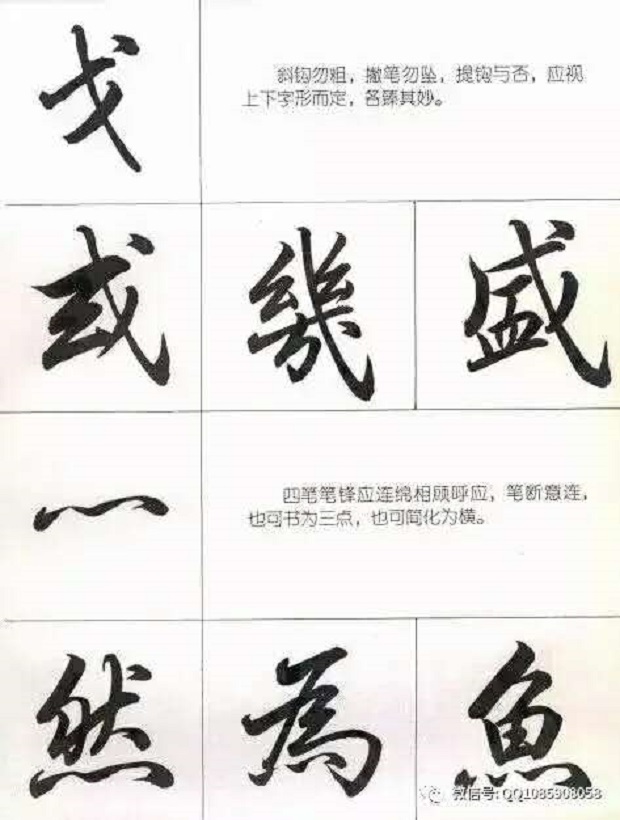 戈
斜钩勿粗，撇笔勿坠，提钩与否，应视
上下字形而定，各臻其妙。
或 幾 盛
灬
四笔笔锋应连绵相顾呼应，笔断意连，
也可书为三点，也可简化为横。
然 為 魚
微信号: QQ1085908058